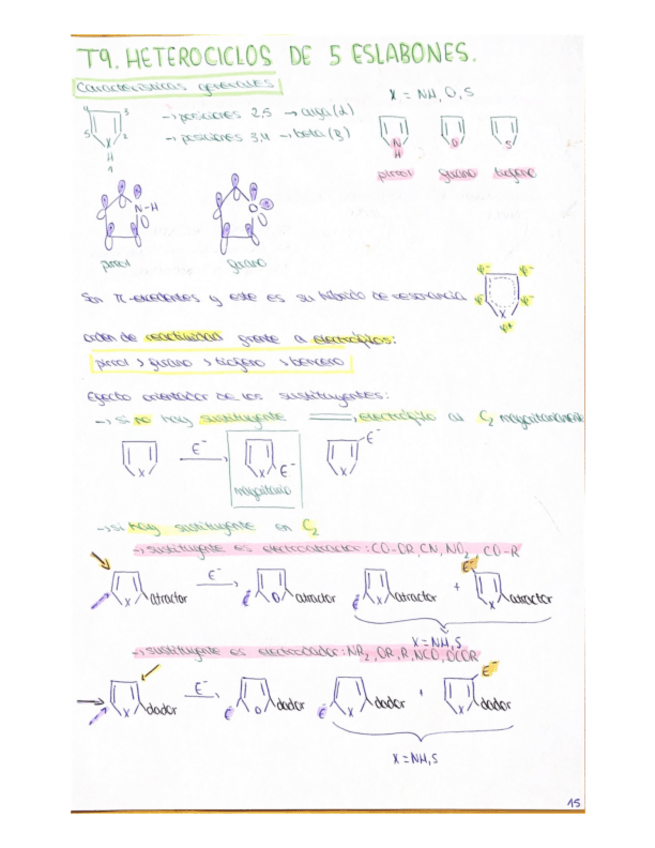 T9. HETEROCICLOS DE 5 ESLABONES.
Características generales
X = NH, O, S
4 3
5 2
X
H
1
→ posiciones 2,5 → alfa (α)
→ posiciones 3,4 → beta (β)
N
H
O
S
pirrol furano tiofeno
N-H
O
pirrol furano
Son π-excedentes y este es su híbrido de resonancia
X
orden de reactividad frente a electrófilos:
pirrol > furano > tiofeno > benceno
Efecto orientador de los sustituyentes:
→ si no hay sustituyente ⟹ electrófilo al C2 mayoritariamente
X E⁻ X E⁻ X E⁻
mayoritario
→ si hay sustituyente en C2
→ sustituyente es electroatractor: CO-OR, CN, NO2, CO-R
X atractor E⁻ E O atractor E X atractor + E⁻ X atractor
X = NH, S
→ sustituyente es electrodador: NR2, OR, R, NCO, OCOR
X dador E⁻ E O dador E X dador + E⁻ X dador
X = NH, S
15